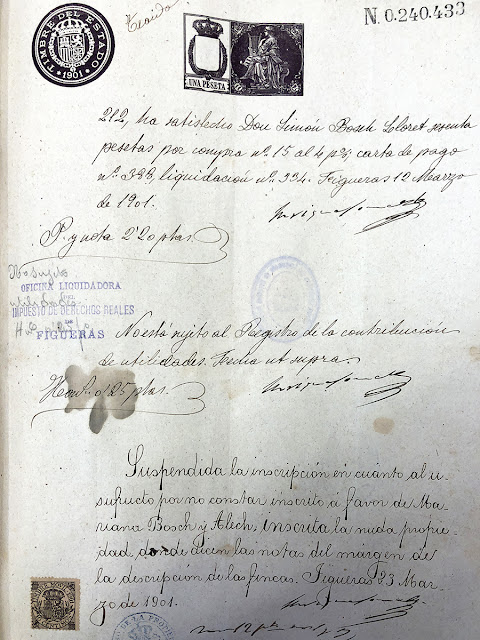 TIMBRE DEL ESTADO
1901
N.0.240.433
UNA PESETA
212, ha satisfecho Don Simón Bosch Lloret sesenta
pesetas por compra nº. 15 al 4 p%, carta de pago
nº. 388, liquidación nº. 334. Figueras 12 Marzo
de 1901.
P. y nota 2'20 ptas.
No sujeto
OFICINA LIQUIDADORA
DEL
utilidades
IMPUESTO DE DERECHOS REALES
FIGUERAS
No está sujeto al Registro de la contribución
de utilidades. Fecha ut supra.
Hon.º 0'25 ptas.
Suspendida la inscripción en cuanto al u-
sufructo por no constar inscrito á favor de Ma-
riana Bosch y Alech. Inscrita la nuda propie-
dad, donde dicen las notas del margen de
la descripción de las fincas. Figueras 23 Mar-
zo de 1901.